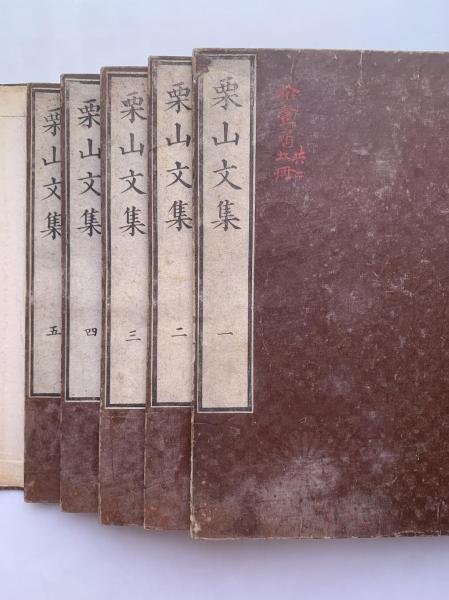 栗山文集 一
栗山文集 二
栗山文集 三
栗山文集 四
栗山文集 五
共二
五冊